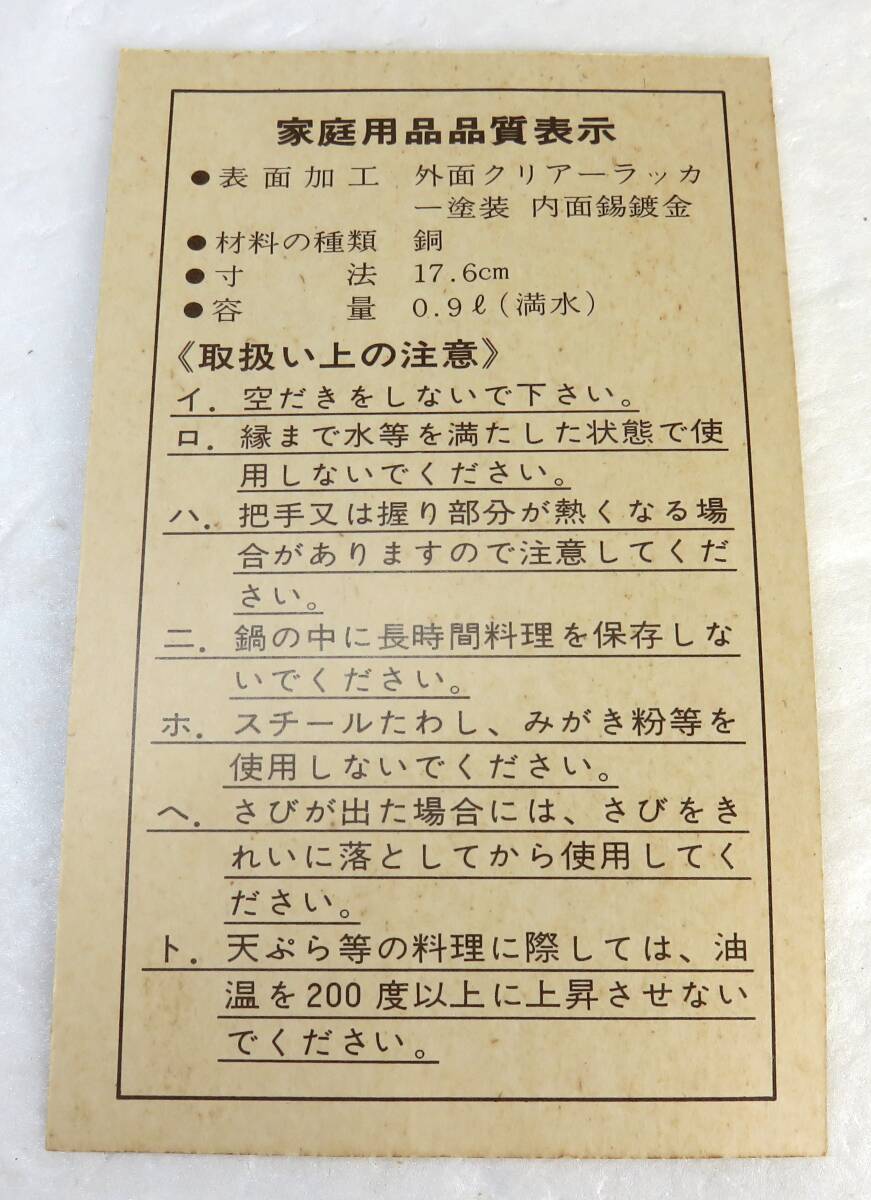 家庭用品品質表示
●表面加工 外面クリアーラッカ
ー塗装 内面錫鍍金
●材料の種類 銅
●寸法 17.6cm
●容量 0.9ℓ(満水)
《取扱い上の注意》
イ. 空だきをしないで下さい。
ロ. 縁まで水等を満たした状態で使
用しないでください。
ハ. 把手又は握り部分が熱くなる場
合がありますので注意してくだ
さい。
ニ. 鍋の中に長時間料理を保存しな
いでください。
ホ. スチールたわし、みがき粉等を
使用しないでください。
ヘ. さびが出た場合には、さびをき
れいに落としてから使用してく
ださい。
ト. 天ぷら等の料理に際しては、油
温を200度以上に上昇させない
でください。